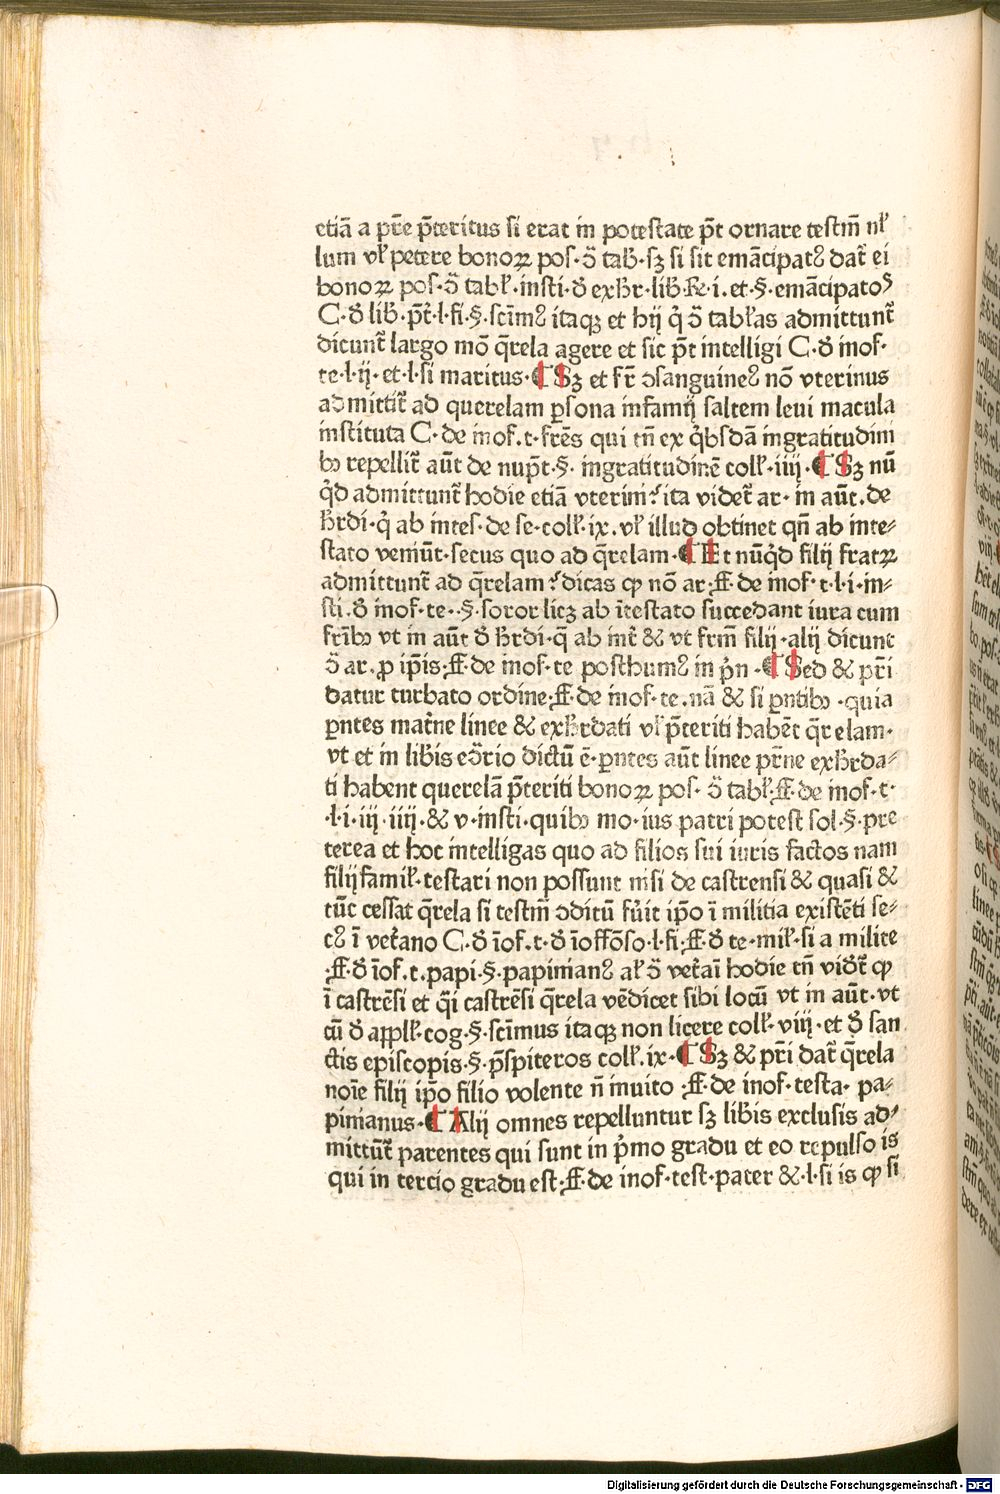 etiã a pr̃e p̃teritus si erat in potestate p̃t ornare testm̃ nł
lum vł petere bonoꝝ pos·ↄ̃ tab̃·sꝫ si sit emãcipatꝰ dat̃ ei
bonoꝝ pos·ↄ̃ tabł·insti·ð exħr·lib·Re·i·et·§·emãcipatoꝰ
C·ð lib̃·p̃t·l·fi·§·scim̃ꝰ itaqꝫ et hij q̇ ↄ̃ tabłas admittunt̃
dicunt̃ largo mõ q̃rela agere et sic p̃t intelligi C·ð inof·
te·l·ij·et·l·si maritus·¶ Sꝫ et fr̃ ↄsanguineꝰ nõ vterinus
admittit̃ ad querelam ꝑsona infamij saltem leui macula
instituta C·de inof·t·fr̃es qui tñ ex q̇bſdã ingratitudini
bꝰ repellit̃ aũt de nup̃t·§·ingratitudinẽ colł·iiij·¶ Sꝫ nũ
q̇d admittunt̃ hodie etiã vterini? ita videt̃ ar·in aũt·de
ħrdi·q̇ ab intes·de se·colł·ix·vł illud obtinet qñ ab inte-
stato veniũt·secus quo ad q̃relam·¶ Et nũq̇d filij fratꝝ
admittunt̃ ad q̃relam? dicas ꝙ nõ ar·ff·de inof·t·l·i·in-
sti·ð inof·te··§·soror licꝫ ab ĩtestato succedant iura cum
fr̃ibꝰ vt in aũt ð ħrdi·q̃ ab int̃ & vt frm̃ filij·alij dicunt
ↄ̃ ar·ꝓ ip̃is·ff·de inof·te posthumꝰ in p̃n·¶ Sed & pr̃i
datur turbato ordine·ff·de inof·te·nã & si ꝑntibꝰ·quia
ꝑntes mat̃ne linee & exħrdati vł p̃teriti habẽt q̃relam·
vt et in libis eↄ̃rio dictũ ẽ·ꝑntes aũt linee pr̃ne exħrda-
ti habent querelã p̃teriti bonoꝝ pos·ↄ̃ tabł·ff·de inof·t·
·l·i·iij·iiij·& v·insti·quibꝰ mo·ius patri potest sol·§·pre
terea et hoc intelligas quo ad filios sui iuris factos nam
filijfamił·testari non possunt nisi de castrensi & quasi &
tũc cessat q̃rela si testm̃ ↄditũ fu̇it ip̃o ĩ militia existẽti se-
cꝰ ĩ vet̃ano C·ð ĩof·t·ð ĩoff̃oso·l·fi·ff·ð te·mił·si a milite
·ff·ð ĩof·t·papi·§·papinianꝰ ał ↄ̃ vet̃aĩ hodie tñ vid̃t̃ ꝙ
ĩ castrẽsi et q̃i castrẽsi q̃rela vẽdicet sibi locũ vt in aũt·vt
cũ ð appłł·cog·§·scim̃us itaqꝫ non licere colł·viij·et ð san
ctis episcopis·§·p̃spiteros colł·ix·¶ Sꝫ & pr̃i dat̃ q̃rela
noĩe filij ip̃o filio volente ñ inuito·ff·de inof·testa·pa-
pinianus·¶ Alij omnes repelluntur sꝫ libis exclusis ad-
mittũt̃ parentes qui sunt in p̃mo gradu et eo repulso is
qui in tercio gradu est·ff·de inof·test·pater &·l·si is ꝙ si
Digitalisierung gefördert durch die Deutsche Forschungsgemeinschaft - DFG